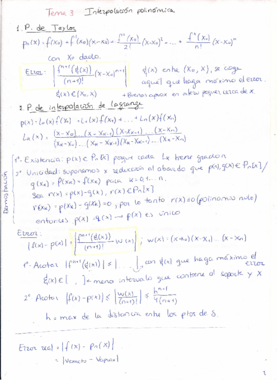 Tema 3 Interpolación polinómica
1. P. de Taylor
Pn(x) = f(x0) + f'(x0)(x-x0) + f''(x0)/2! (x-x0)² + ... + f^n(x0)/n! (x-x0)^n
con x0 dado
Error = | f^(n+1)(ξ(x))/(n+1)! (x-x0)^(n+1) | ξ(x) entre (x0, x), se coja
aquel que haga máximo el error
ξ(x) ∈ (x0, x)
2. P de interpolación de Lagrange
p(x) = L0(x) f(x0) + L1(x) f(x1) + ... + Ln(x) f(xn)
Demostración
1º- Existencia: p(x) ∈ Pn[x] porque cada Lk tiene grado n
2º- Unicidad: suponemos x reducción al absurdo que p(x), q(x) ∈ Pn[x] /
q(xk) = p(xk) = f(xk) para k = 0, 1...n.
Sea r(x) = p(x) - q(x), r(x) ∈ Pn[x]
r(xk) = p(xk) - q(xk) = 0, por lo tanto r(x) = 0 (polinomio nulo)
entonces p(x) = q(x) → p(x) es único
Error:
| f(x) - p(x) | = | f^(n+1)(ξ(x))/(n+1)! · W(x) | , W(x) = (x-x0)(x-x1)...(x-xn)
1º- Acotar |f^(n+1)(ξ(x))| ≤ | con ξ(x) que haga máximo el error
ξ(x) ∈ I, I = menor intervalo que contiene al soporte y x
2º Acotar |f(x) - p(x)| ≤ |W(x)|/(n+1)! ≤ h^(n+1)/4(n+1)
h = max de la distancia entre los ptos de s.
Error real = | f(x) - Pn(x) |
= | Vexacto - Vaprox |
1